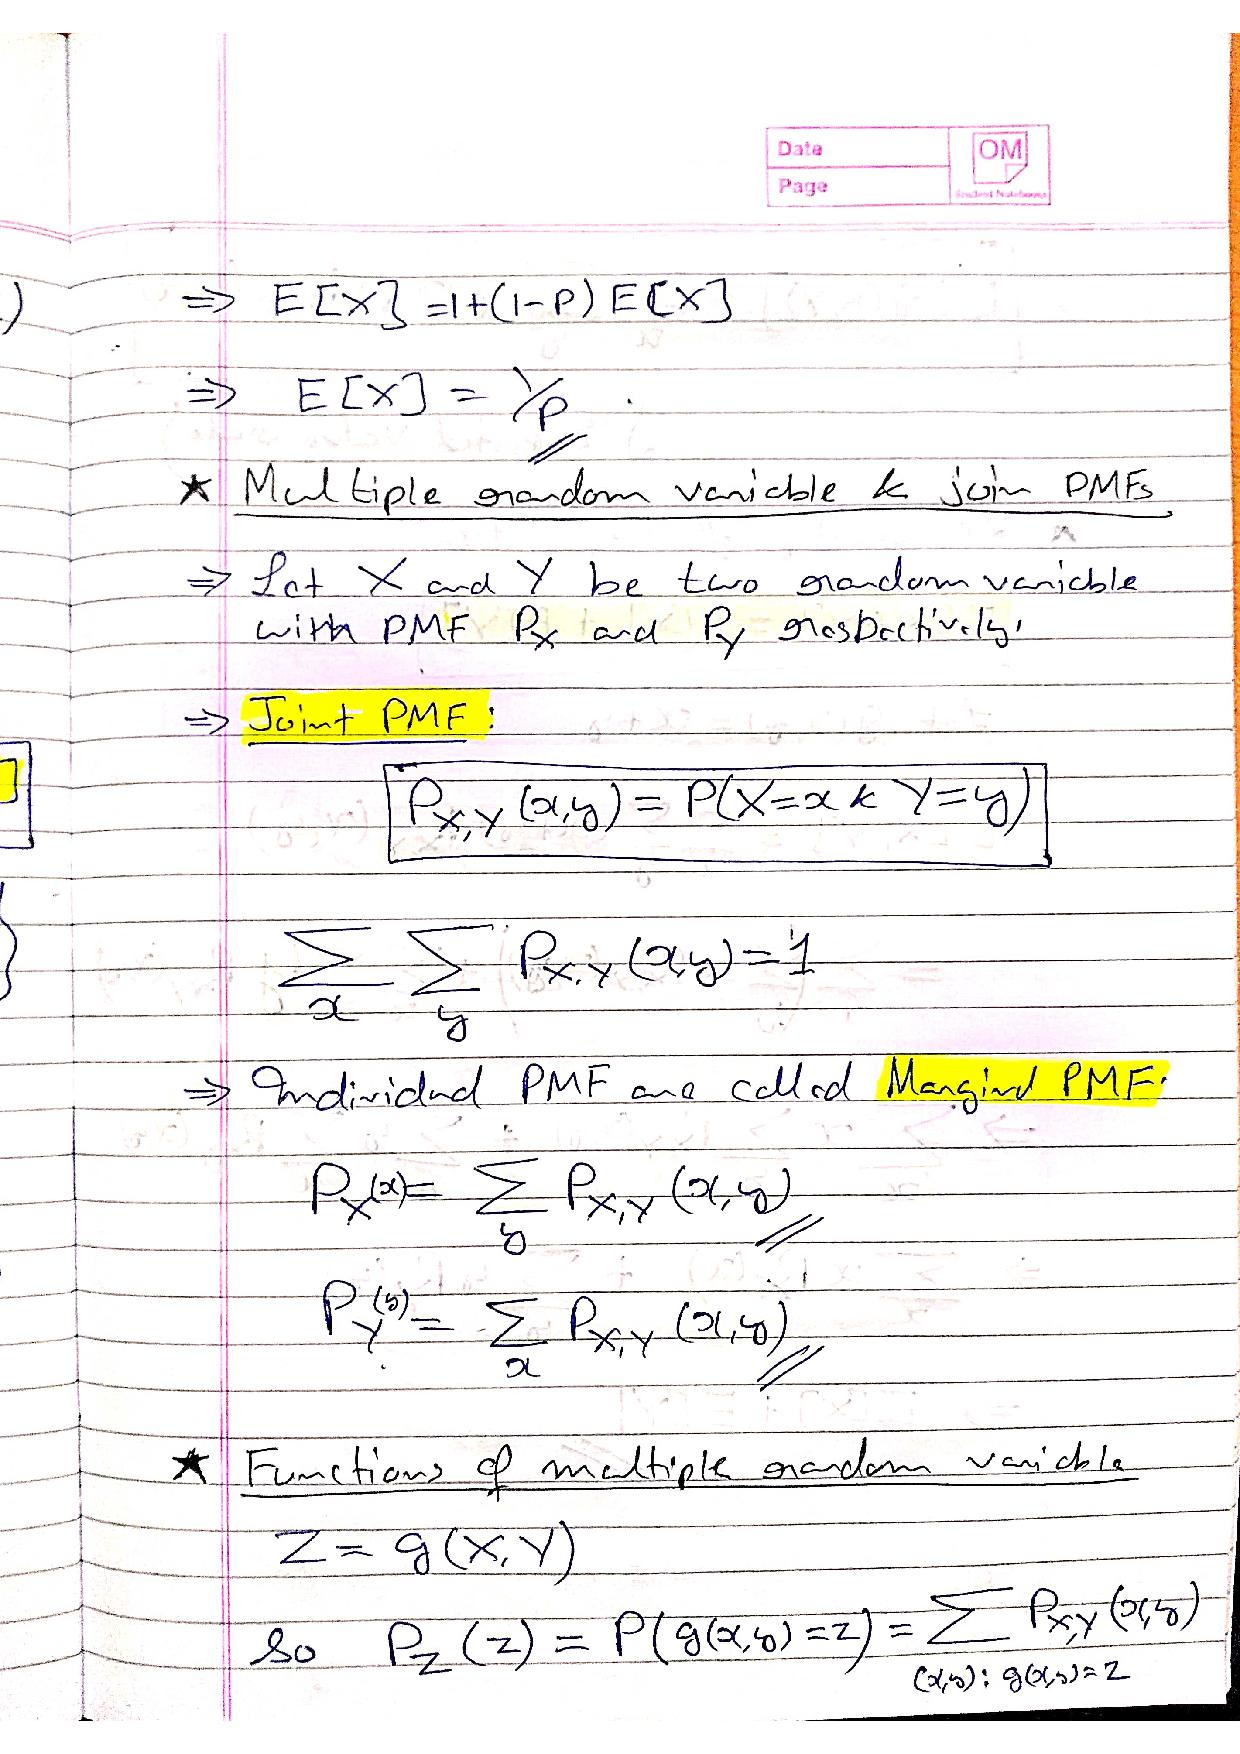 Date
OM
Page
Student Notebooks
⇒ E[X] = 1+(1-P) E[X]
⇒ E[X] = 1/P
★ Multiple random variable & join PMFs
⇒ Let X and Y be two random variable
with PMF Px and Py respectively.
⇒ Joint PMF:
P_{X,Y}(x,y) = P(X=x & Y=y)
∑_x ∑_y P_{X,Y}(x,y) = 1
⇒ Individual PMF are called Marginal PMF.
P_X(x) = ∑_y P_{X,Y}(x,y)
P_Y(y) = ∑_x P_{X,Y}(x,y)
★ Functions of multiple random variable
Z = g(X,Y)
So P_Z(z) = P(g(x,y)=z) = ∑ P_{X,Y}(x,y)
(x,y): g(x,y)=z